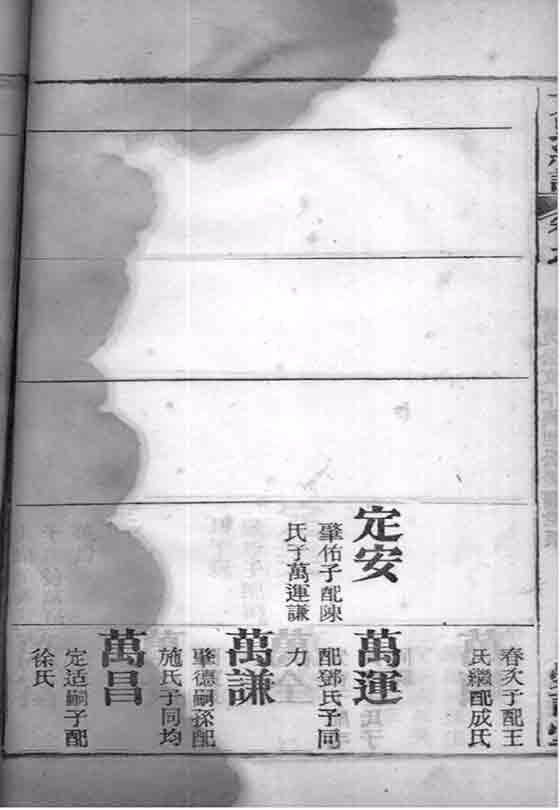 定安
肇佑子配陳
氏子萬運謙
春次子配王
氏繼配成氏
萬運
配鄧氏子同
力
萬謙
肇德嗣孫配
施氏子同均
萬昌
定适嗣子配
徐氏